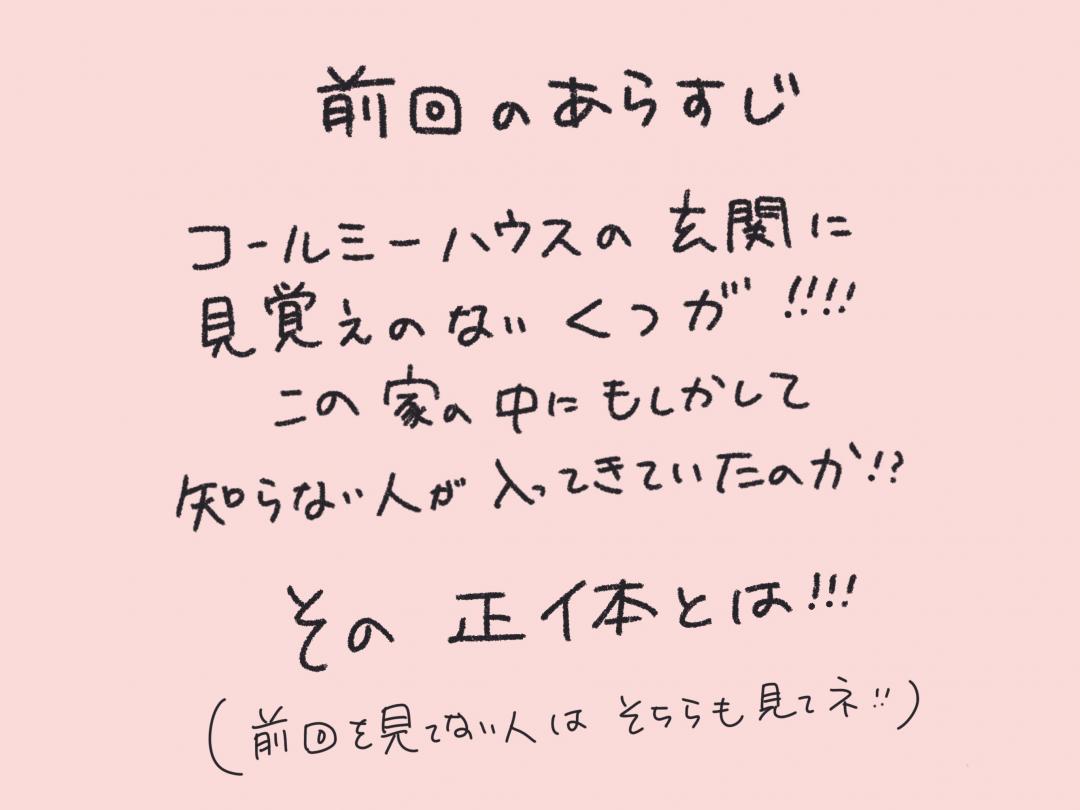 前回のあらすじ
コールミーハウスの玄関に
見覚えのないくつが!!!!
この家の中にもしかして
知らない人が入ってきていたのか!?
その正体とは!!!
(前回を見てない人はそちらも見てネ!!)